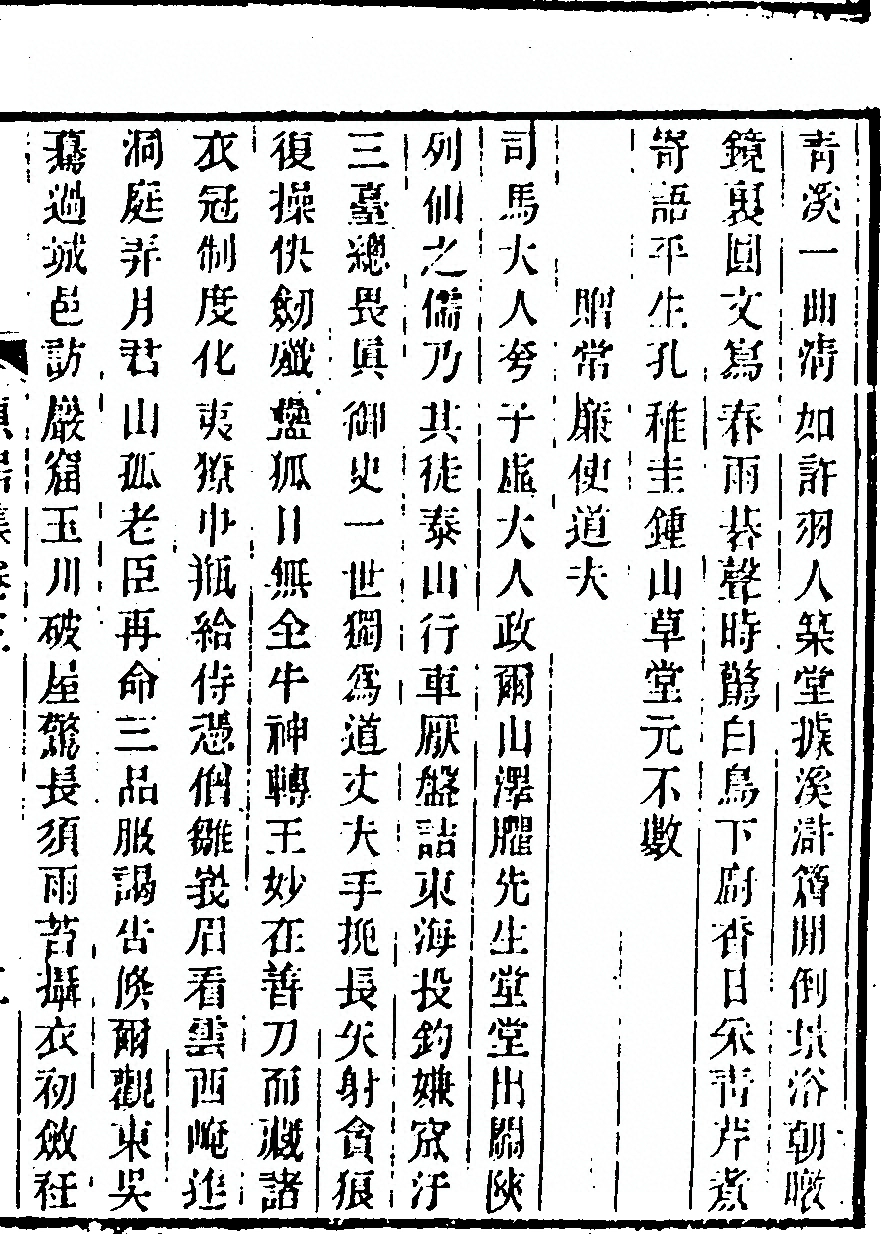 青溪一曲清如許羽人築堂據溪滸簷間倒景浴朝暾
鏡裏圓文寫春雨碁聲時驚白鳥下廚香日采青芹煮
寄語平生孔稚圭鍾山草堂元不數
贈常廉使道夫
司馬大人兮子虛大人政爾山澤臞先生堂堂出關陝
列仙之儒乃其徒泰山行車厭盤詰東海投釣嫌窊汙
三臺總畏眞御史一世獨爲道丈夫手扼長矢射貪狼
復操快劒殲蠱狐目無全牛神轉王妙在善刀而藏諸
衣冠制度化夷獠巾瓶給侍慿僧雛峩眉看雲西崦進
洞庭弄月君山孤老臣再命三品服謁告倏爾觀東吳
驀過城邑訪巖窟玉川破屋驚長須雨苔攝衣初斂衽